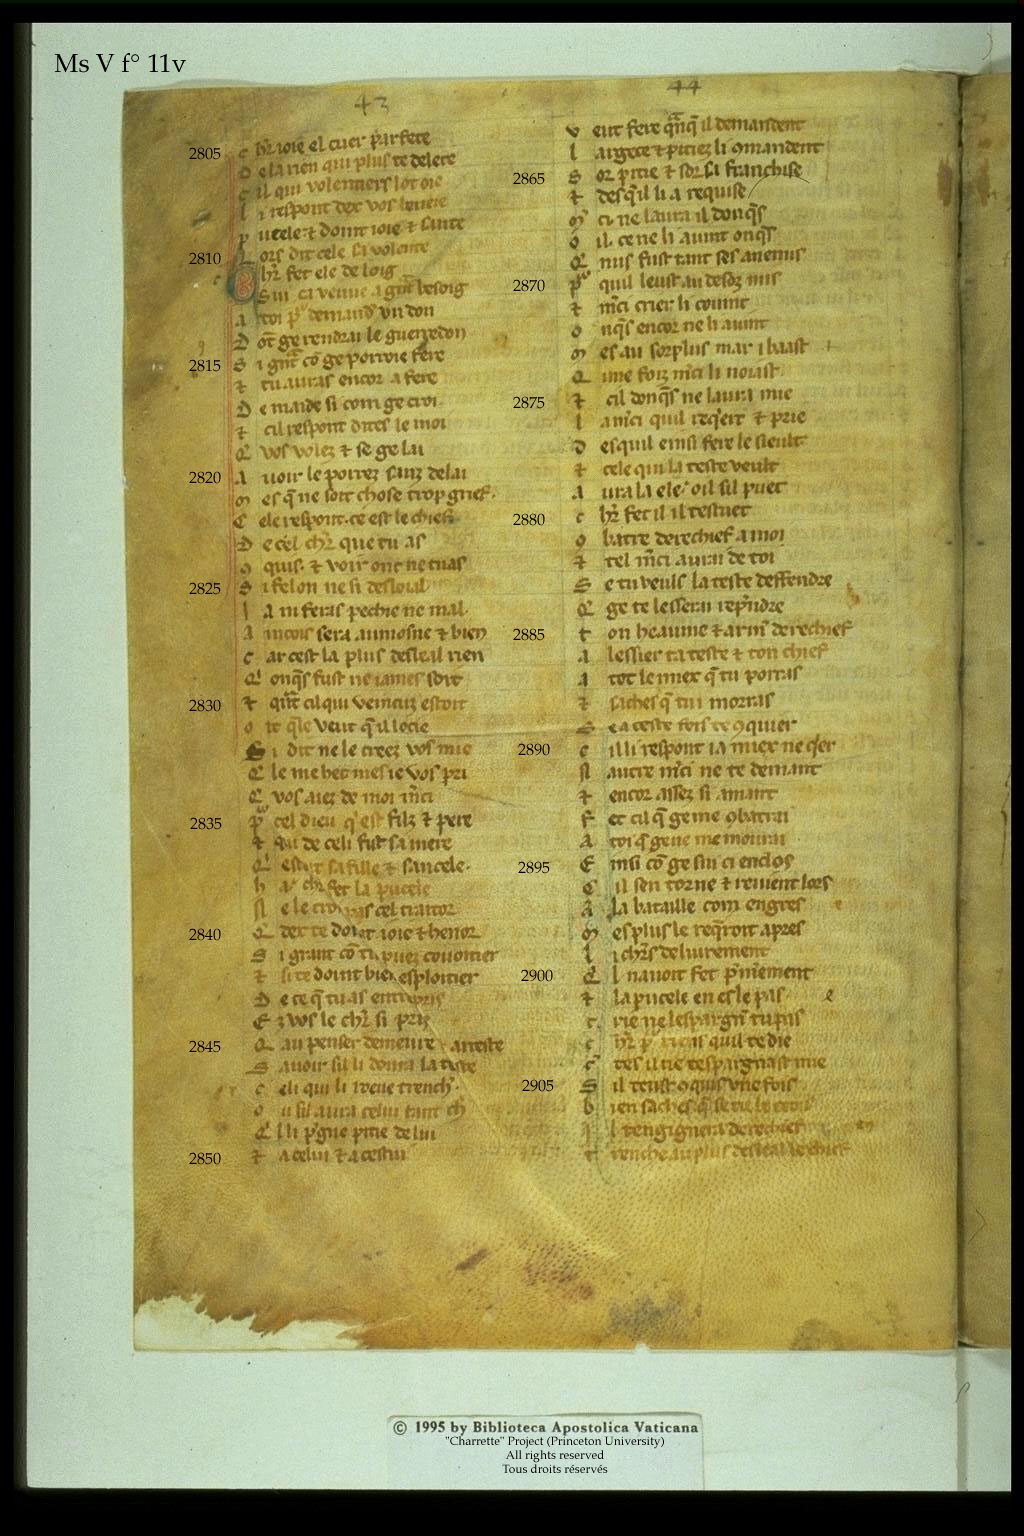 Ms V f° 11v
43
44
2805 c hr ioie el cuer parfete
D e la rien qui plus te delete
c il qui volentiers lot oie
l i respont dex vos lenveie
p ucele & doint ioie & sante
2810 L ors dit cele sa volante
c hr fet ele de loig
S ui ca venue a gnt besoig
a toi pr demand vn don
D ot ge rendrai le guerredon
2815 S i gnt co ge porroie fere
& tu auras encor a fere
D e maide si com ge croi
& cil respont dites le moi
Q vos volez & se ge lai
2820 A uoir le porrez sanz delai
m es q ne soit chose trop grief.
C ele respont. ce est le chief
D e cel chr que tu as
c quis. & voir onc ne tuas
2825 S i felon ne si desloial
l a ni feras pechie ne mal.
A incois sera aumosne & bien
c ar cest la plus desleal rien
Q onqs fust ne iames soit
2830 & qnt cil qui veincuz estoit
o it qle veut q il locie
S i dit ne le creez vos mie
Q le me het mes ie vos pri
Q vos aiez de moi mci
2835 p cel dieu q est filz & pere
& qui de celi fist sa mere
Q estoit sa fille & sancele.
h a chr fet la pucele
N e le croi pas cel traitor
2840 Q dex te doint ioie & henor
S i grant co tu puez couoitier
& si te doint bien esploitier
D e ce q tu as entrepris
E z vos le chr si pris
2845 Q au penser demeure & arreste
S auoir sil li donra la teste
c eli qui li rueue trench.
o u sil aura celui tant ch
Q l li pgne pitie de lui
2850 & a celui & a cestui
v eut fere qnq il demandent
l argece & pitiez li 9mandent
2865 S or pitie & sor sa franchise
& desqil li a requise
m ci ne laura il donqs
o il. ce ne li auint onqs
Q nus fust tant ses anemis
2870 p quil leust au desoz mis
& mci crier li couint
o nqs encor ne li auint
m es au sorplus mar i baast
Q une foiz mci li noiast
2875 & cil donqs ne laura mie
l a mci quil reqiert & prie
D esquil einsi fere le sieult
& cele qui la teste veult
A ura la ele. oil sil puet
2880 c hr fet il il testuet
9 batre derechief a moi
& tel mci aurai de toi
S e tu veuls la teste deffendre
Q ge te lesserai repndre
2885 t on heaume & arm derechief
a lessier ta teste & ton chief
a tot le miex q tu porras
& saches q tu i morras
S e a ceste fois te 9quier
2890 c il li respont ia miex ne qer
N autre mci ne te demant
& encor assez si amant
F et cil q ge me 9batrai
A toi q ge ne me mourai
2895 E insi co ge sui ci enclos
C il sen torne & reuient lors
A la bataille com engres
m es plus le reqroit apres
l i chrs deliurement
2900 Q l nauoit fet pmierement
& la pucele en esle pas
c rie ne lespargn tu pas
c hr p riens quil te die
c tes il ne tespargnast mie
2905 S il teust 9quis vne fois
b ien saches q se tu le crois
l l tengignera derechief
t renche au plus desleal le chief
© 1995 by Biblioteca Apostolica Vaticana
"Charrette" Project (Princeton University)
All rights reserved
Tous droits réservés